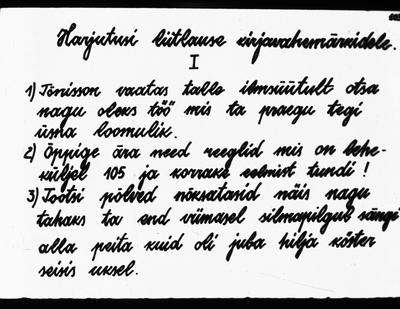 Harjutusi liitlause kirjavahemärkidele.
I
1) Tõnisson vaatas talle ilmsüütult otsa
nagu oleks töö mis ta praegu tegi
üsna loomulik.
2) Õppige ära need reeglid mis on lehe-
küljel 105 ja korrake eelmist tundi!
3) Tootsi põlved nõksatasid näis nagu
tahaks ta end viimasel silmapilgul sängi
alla peita kuid oli juba hilja köster
seisis uksel.